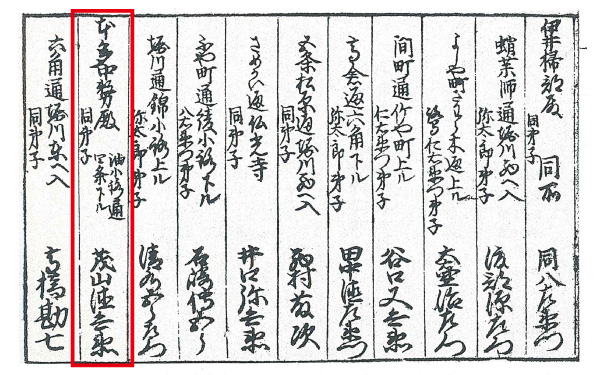 伊井掃部殿 同所 同弟子 同八左衛門
蛸薬師通堀川西へ入 弥太郎弟子 源左衛門
よしや町さわら木通上ル 鷺仁右衛門弟子
間町通竹や町上ル 仁右衛門弟子 谷口又兵衛
高倉通六角下ル 弥太郎弟子 田中徳左衛門
松原通堀川西へ入 同弟子 西村友次
さめかい通仏光寺 同弟子 井口弥兵衛
ふや町通綾小路下ル 弟子 石橋
堀川通錦小路上ル 弥太郎弟子 清水
本多中務殿 油小路通四条下ル 同弟子 茂山徳兵衛
六角通堀川東へ入 同弟子 高橋勘七